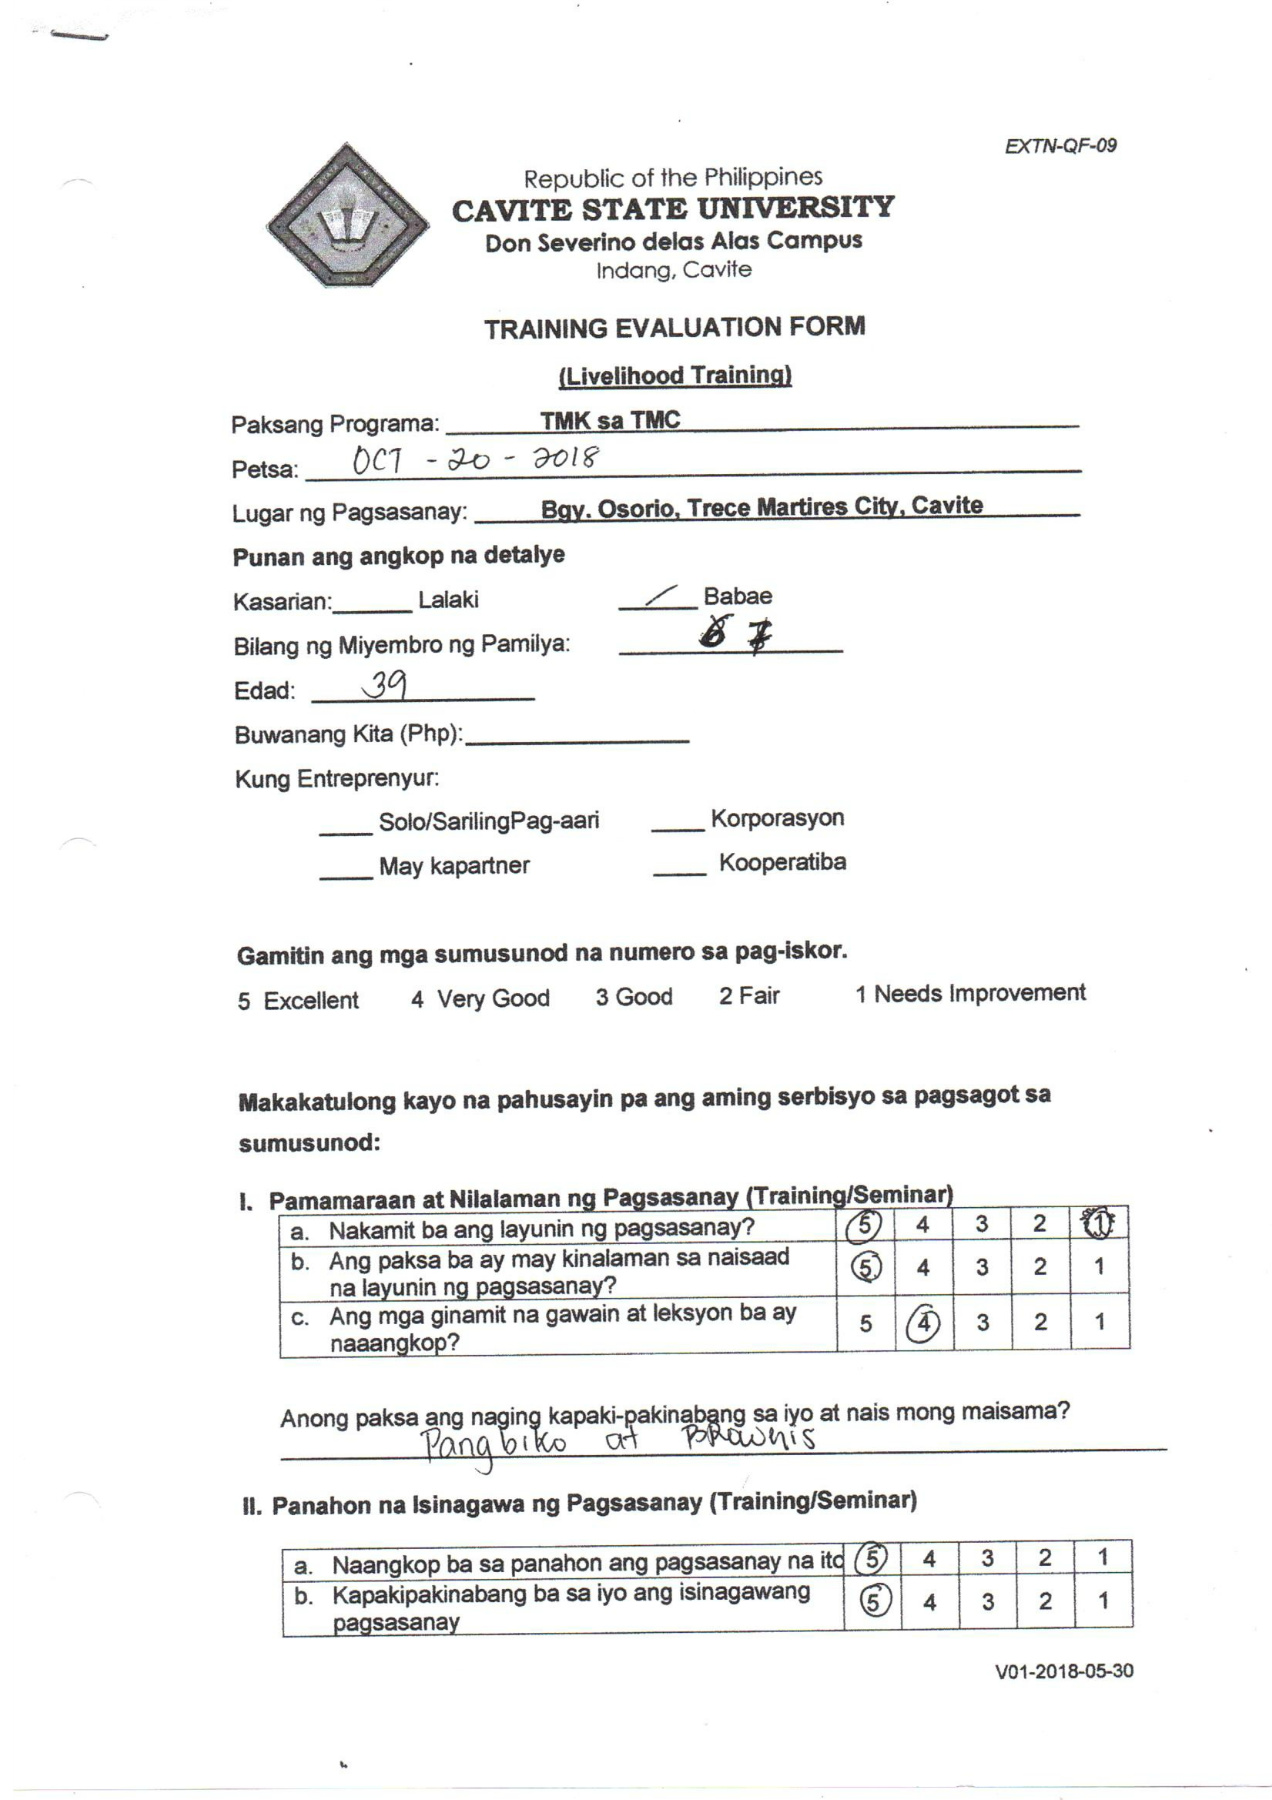 EXTN-QF-09
Republic of the Philippines
CAVITE STATE UNIVERSITY
Don Severino delas Alas Campus
Indang, Cavite
TRAINING EVALUATION FORM
(Livelihood Training)
Paksang Programa: TMK sa TMC
Petsa: OCT - 20 - 2018
Lugar ng Pagsasanay: Bgy. Osorio, Trece Martires City, Cavite
Punan ang angkop na detalye
Kasarian:______ Lalaki / Babae
Bilang ng Miyembro ng Pamilya:
Edad: 39
Buwanang Kita (Php):
Kung Entreprenyur:
____ Solo/SarilingPag-aari ____ Korporasyon
____ May kapartner ____ Kooperatiba
Gamitin ang mga sumusunod na numero sa pag-iskor.
5 Excellent 4 Very Good 3 Good 2 Fair 1 Needs Improvement
Makakatulong kayo na pahusayin pa ang aming serbisyo sa pagsagot sa
sumusunod:
I. Pamamaraan at Nilalaman ng Pagsasanay (Training/Seminar)
a. Nakamit ba ang layunin ng pagsasanay? 5 4 3 2 1
b. Ang paksa ba ay may kinalaman sa naisaad
na layunin ng pagsasanay? 5 4 3 2 1
c. Ang mga ginamit na gawain at leksyon ba ay
naaangkop? 5 4 3 2 1
Anong paksa ang naging kapaki-pakinabang sa iyo at nais mong maisama?
Pangbiko at BRawnis
II. Panahon na Isinagawa ng Pagsasanay (Training/Seminar)
a. Naangkop ba sa panahon ang pagsasanay na ito 5 4 3 2 1
b. Kapakipakinabang ba sa iyo ang isinagawang
pagsasanay 5 4 3 2 1
V01-2018-05-30